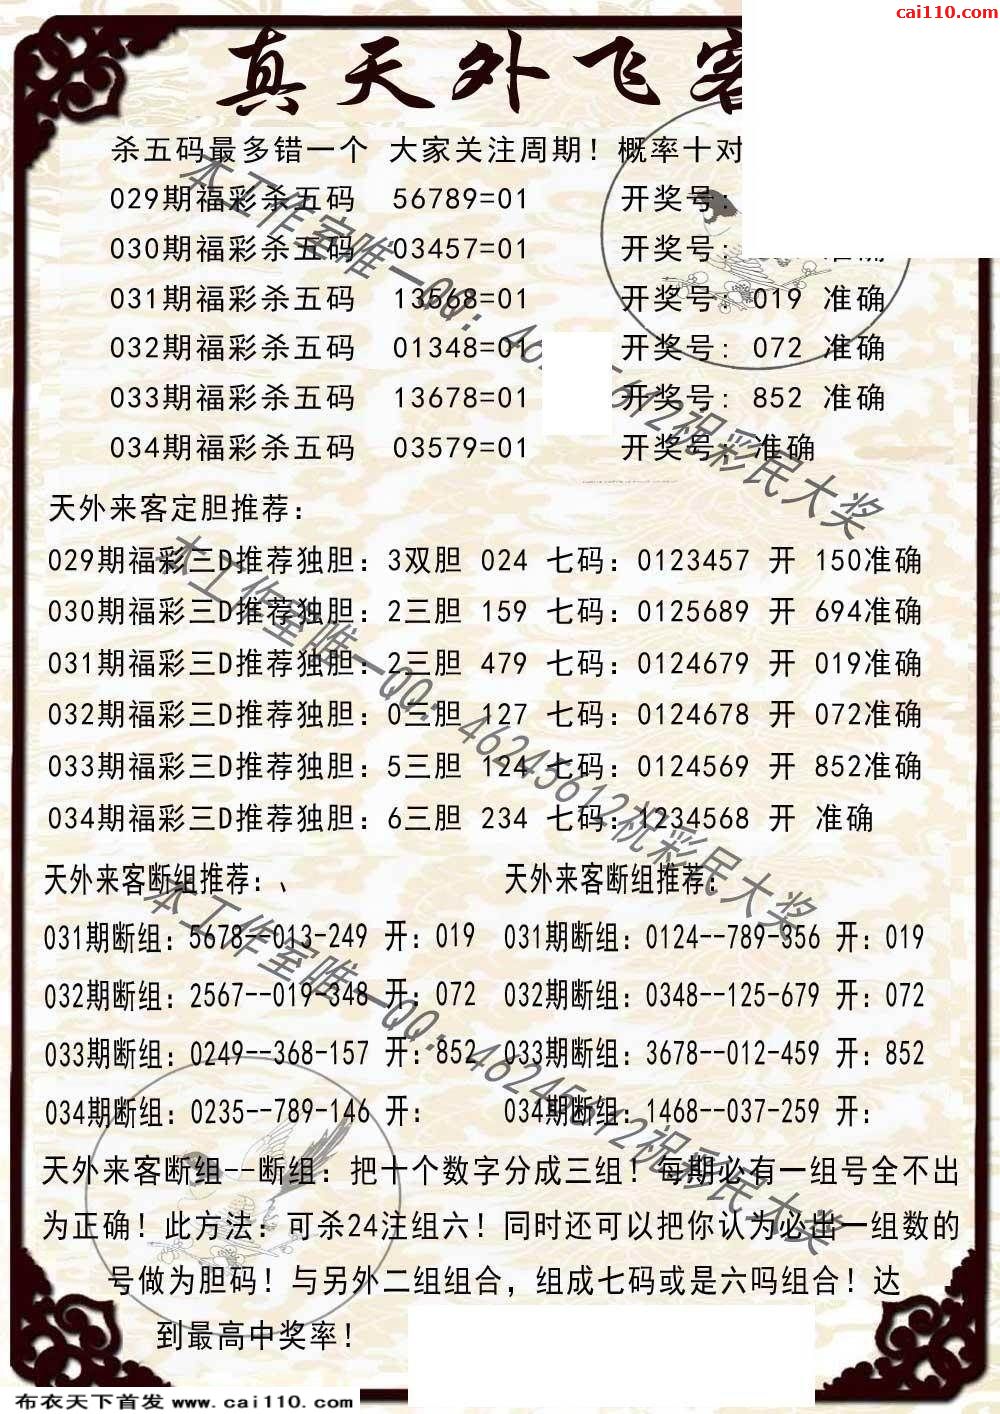 cai110.com
真天外飞客
杀五码最多错一个 大家关注周期！概率十对
029期福彩杀五码 56789=01 开奖号:
030期福彩杀五码 03457=01 开奖号: 准确
031期福彩杀五码 13568=01 开奖号: 019 准确
032期福彩杀五码 01348=01 开奖号: 072 准确
033期福彩杀五码 13678=01 开奖号: 852 准确
034期福彩杀五码 03579=01 开奖号: 准确
天外来客定胆推荐:
029期福彩三D推荐独胆: 3双胆 024 七码: 0123457 开 150准确
030期福彩三D推荐独胆: 2三胆 159 七码: 0125689 开 694准确
031期福彩三D推荐独胆: 2三胆 479 七码: 0124679 开 019准确
032期福彩三D推荐独胆: 0三胆 127 七码: 0124678 开 072准确
033期福彩三D推荐独胆: 5三胆 124 七码: 0124569 开 852准确
034期福彩三D推荐独胆: 6三胆 234 七码: 1234568 开 准确
天外来客断组推荐:、 天外来客断组推荐:
031期断组: 5678--013-249 开: 019 031期断组: 0124--789-356 开: 019
032期断组: 2567--019-348 开: 072 032期断组: 0348--125-679 开: 072
033期断组: 0249--368-157 开: 852 033期断组: 3678--012-459 开: 852
034期断组: 0235--789-146 开: 034期断组: 1468--037-259 开:
天外来客断组--断组: 把十个数字分成三组！每期必有一组号全不出
为正确！此方法: 可杀24注组六！同时还可以把你认为必出一组数的
号做为胆码！与另外二组组合，组成七码或是六吗组合！达
到最高中奖率！
本工作室唯一QQ: 46245612祝彩民大奖
本工作室唯一QQ: 46245612祝彩民大奖
本工作室唯一QQ: 46245612祝彩民大奖
布衣天下首发 www.cai110.com